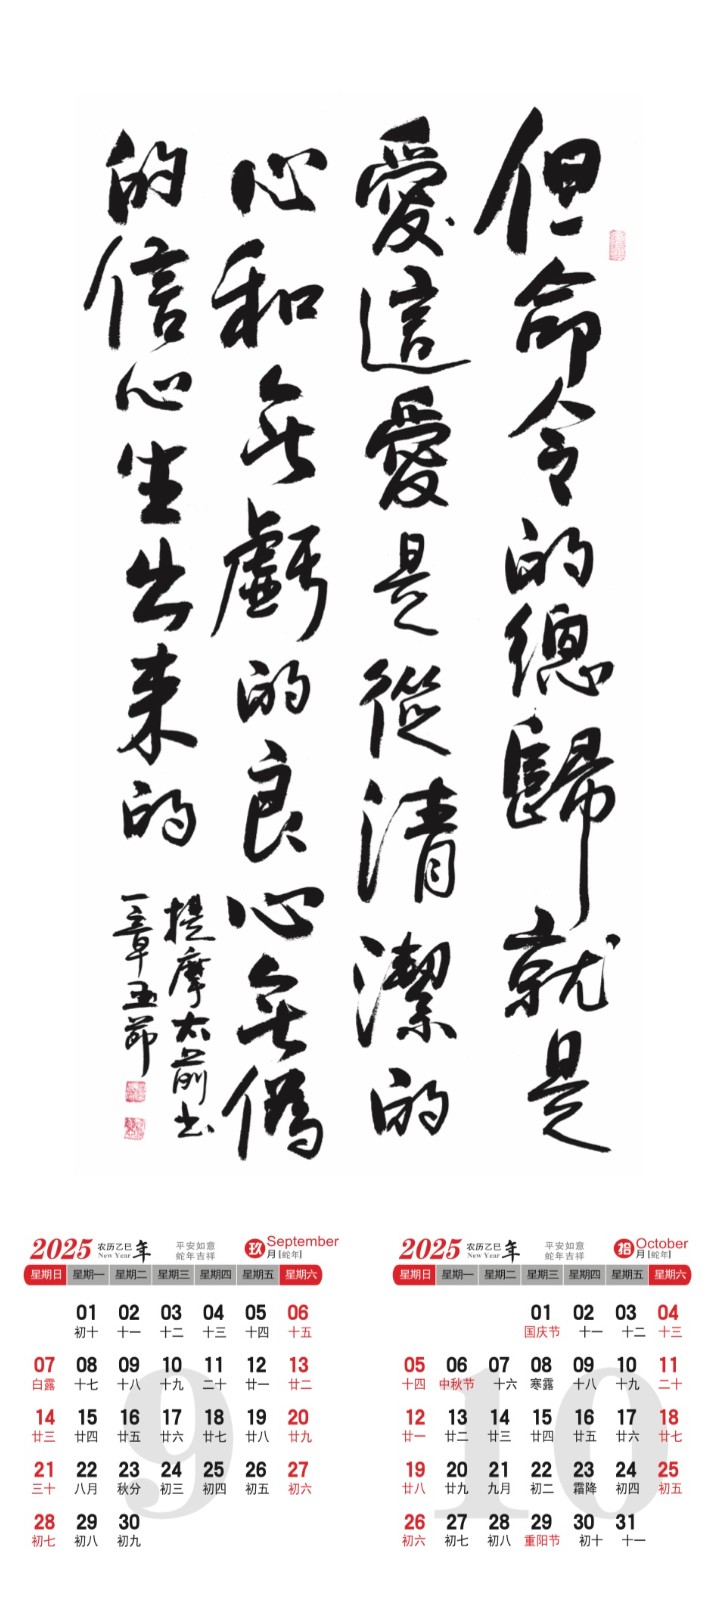 但命令的總歸就是
愛這愛是從清潔的
心和無虧的良心無偽
的信心生出来的
提摩太前书
一章五節
2025 农历乙巳 New Year 年 平安如意 蛇年吉祥 玖月 September [蛇年]
星期日 星期一 星期二 星期三 星期四 星期五 星期六
01 02 03 04 05 06
初十 十一 十二 十三 十四 十五
07 08 09 10 11 12 13
白露 十七 十八 十九 二十 廿一 廿二
14 15 16 17 18 19 20
廿三 廿四 廿五 廿六 廿七 廿八 廿九
21 22 23 24 25 26 27
三十 八月 秋分 初三 初四 初五 初六
28 29 30
初七 初八 初九
9
2025 农历乙巳 New Year 年 平安如意 蛇年吉祥 拾月 October [蛇年]
星期日 星期一 星期二 星期三 星期四 星期五 星期六
01 02 03 04
国庆节 十一 十二 十三
05 06 07 08 09 10 11
十四 中秋节 十六 寒露 十八 十九 二十
12 13 14 15 16 17 18
廿一 廿二 廿三 廿四 廿五 廿六 廿七
19 20 21 22 23 24 25
廿八 廿九 九月 初二 霜降 初四 初五
26 27 28 29 30 31
初六 初七 初八 重阳节 初十 十一
10